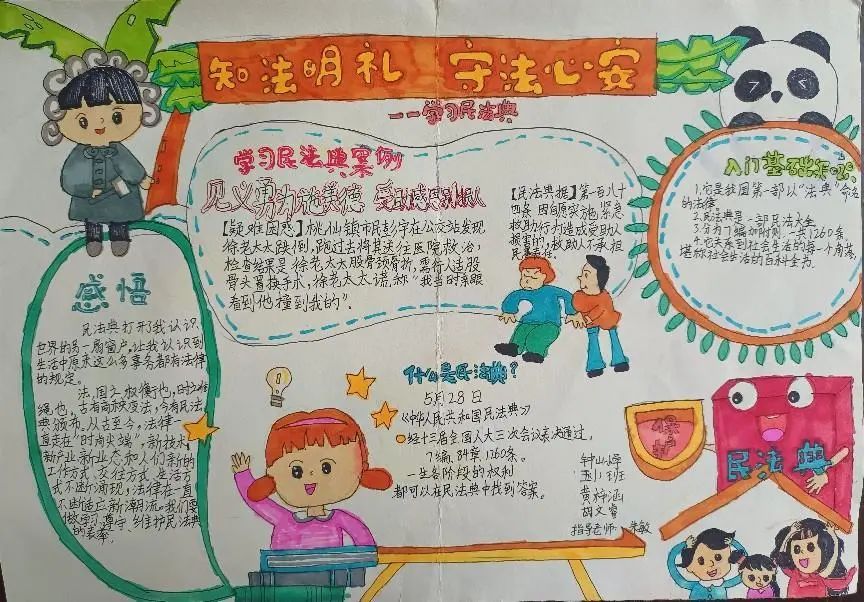 知法明礼 守法心安
——学习民法典
学习民法典案例
见义勇为施美德
【疑难困惑】桃仙镇市民彭宇在公交站发现
徐老太太跌倒，跑过去将其送往医院救治，
检查结果是徐老太太股骨颈骨折，需行人造股
骨头置换手术，徐老太太谎称“我当时亲眼
看到他撞到我的”.
【民法典据】第一百八十
四条 因自愿实施紧急
救助行为造成受助人
损害的，救助人不承担
民事责任.
入门基础
1.它是我国第一部以“法典”命名
的法律
2.民法典是一部民法大全
3.分为7编加附则，一共1260条
4.它关系到社会生活的每个角落，
堪称社会生活的百科全书.
感悟
民法典打开了我认识
世界的另一扇窗户.让我认识到
生活中原来这么多事务都有法律
的规定。
法，国之权衡也，时之准
绳也，古有商鞅变法，今有民法
典颁布，从古至今，法律一
直走在“时尚尖端”，新技术，
新产业新业态和人们新的
工作方式、交往方式、生活方
式不断涌现，法律在一直
不断适应新潮流。我们要
做学习、遵守、维护民法典
的表率.
什么是民法典？
5月28日
《中华人民共和国民法典》
经十三届全国人大三次会议表决通过，
7编、84章1260条.
一生各阶段的权利
都可以在民法典中找到答案。
保护
民法典
五川班
黄梓涵
胡文睿
指导老师：朱敏